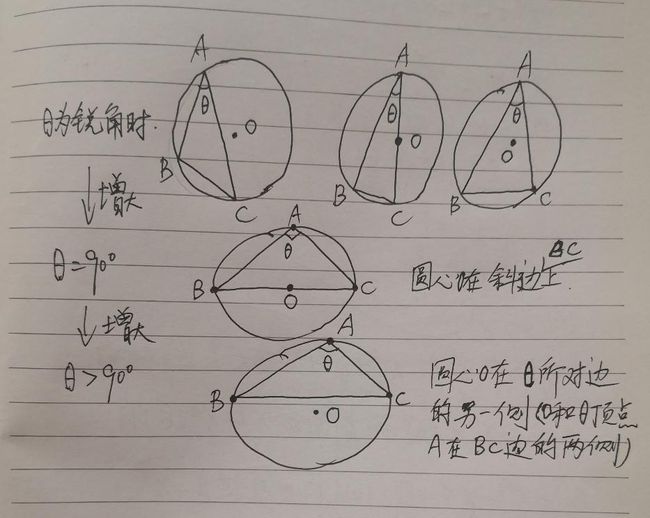 A
A
A
θ
θ
θ
θ为锐角时.
O
O
O
B
C
B
C
B
C
↓增大
A
θ
θ=90°
B
O
C
圆心在斜边上.
BC
↓增大
A
θ
θ>90°
B
C
O
圆心O在θ所对边
的另一侧(O和θ顶点
A在BC边的两侧)